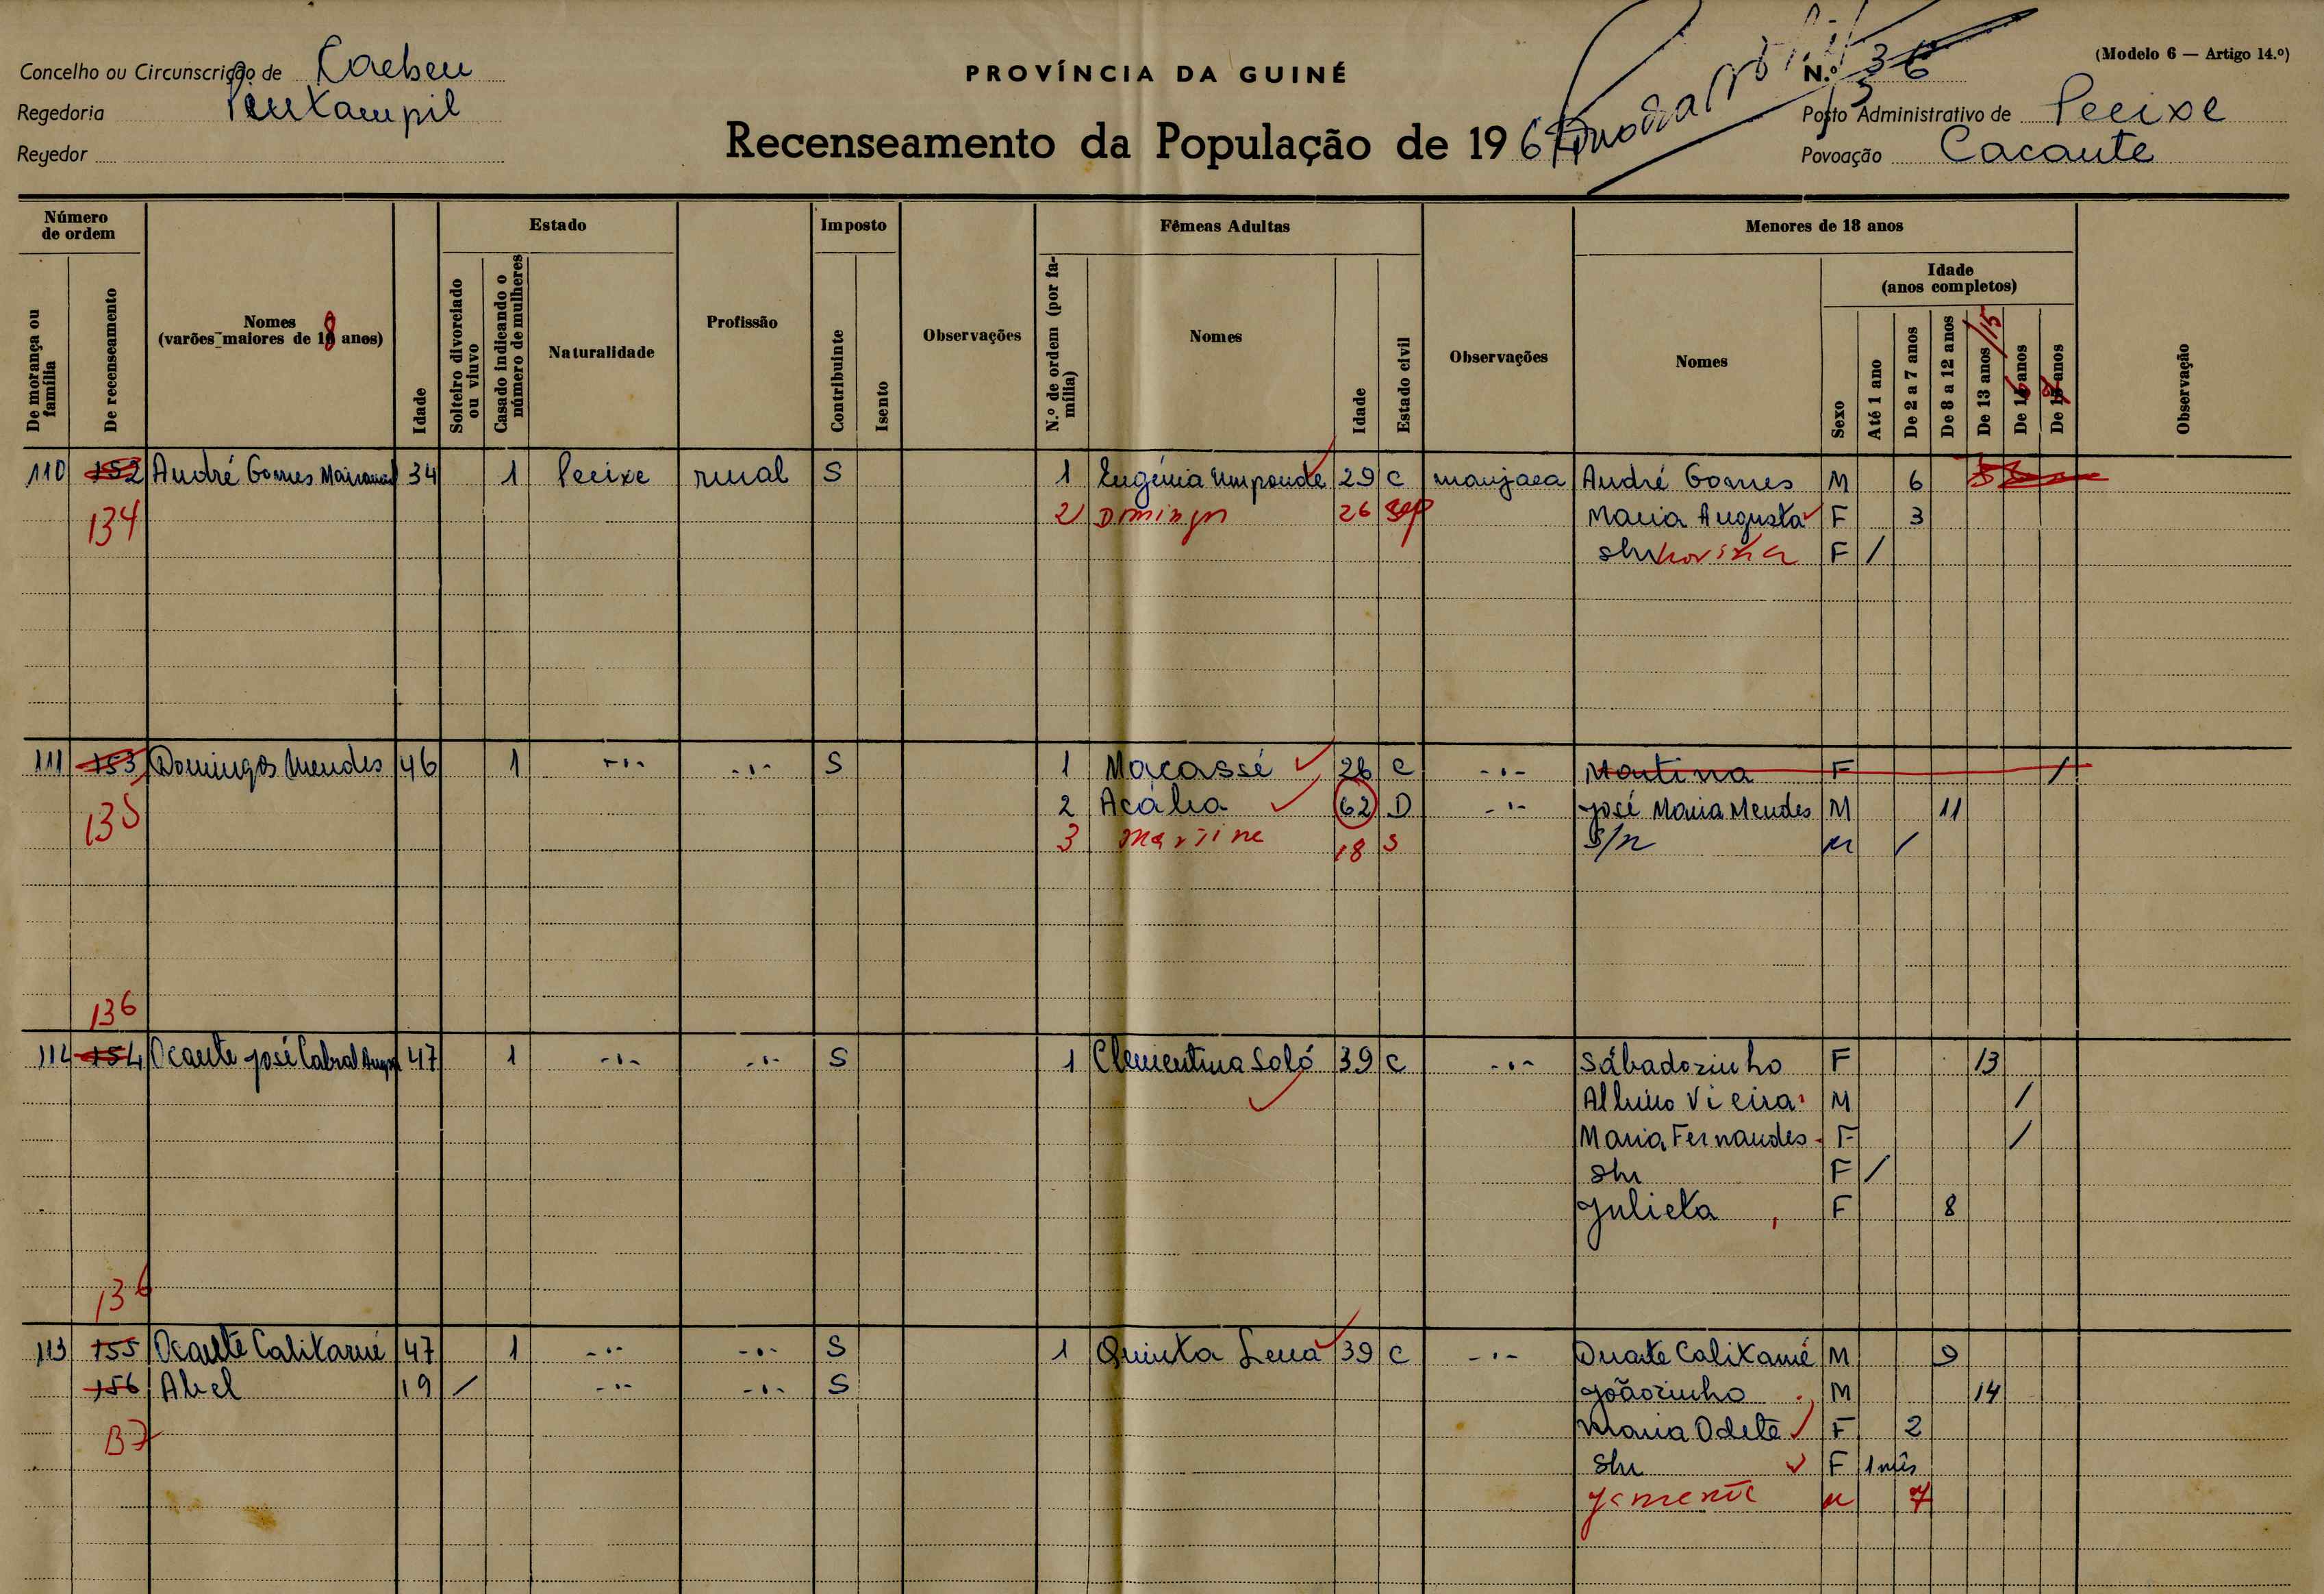 Concelho ou Circunscrição de Cacheu
Regedoria
Regedor
PROVÍNCIA DA GUINÉ
Recenseamento da População de 196
(Modelo 6 — Artigo 14.º)
N.º 36
Posto Administrativo de Pecixe
Povoação Cacante
Número de ordem
De morança ou família
De recenseamento
Nomes (varões maiores de 18 anos)
Idade
Estado
Solteiro divorciado ou viuvo
Casado indicando o número de mulheres
Naturalidade
Profissão
Imposto
Contribuinte
Isento
Observações
Fêmeas Adultas
N.º de ordem (por família)
Nomes
Idade
Estado civil
Observações
Menores de 18 anos
Nomes
Idade (anos completos)
Sexo
Até 1 ano
De 2 a 7 anos
De 8 a 12 anos
De 13 anos /15
De 16 anos
De 17 anos
Observação
110 152 André Gomes 34 1 Pecixe rural S 1 Eugénia Umpande 29 C manjaca André Gomes M 6
134 2 Domingas 26 Maria Augusta F 3
F /
111 153 Domingos Mendes 46 1 -.- -.- S 1 Macassé 26 C -.- Martina F /
135 2 62 D -.- José Maria Mendes M 11
3 18 S S/n M /
136
154 Ocante José Cabral 47 1 -.- -.- S 1 Clementina Saló 39 C -.- Sábadozinho F 13
Albino Vieira M /
Maria Fernandes F /
S/n F /
Julieta F 8
136
113 155 Ocante Calikamé 47 1 -.- -.- S 1 Quinta 39 C -.- Duarte Calikamé M 9
156 Abel 19 / -.- -.- S Joãozinho M 14
137 Maria Odete F 2
S/n F 1 mês
M 7